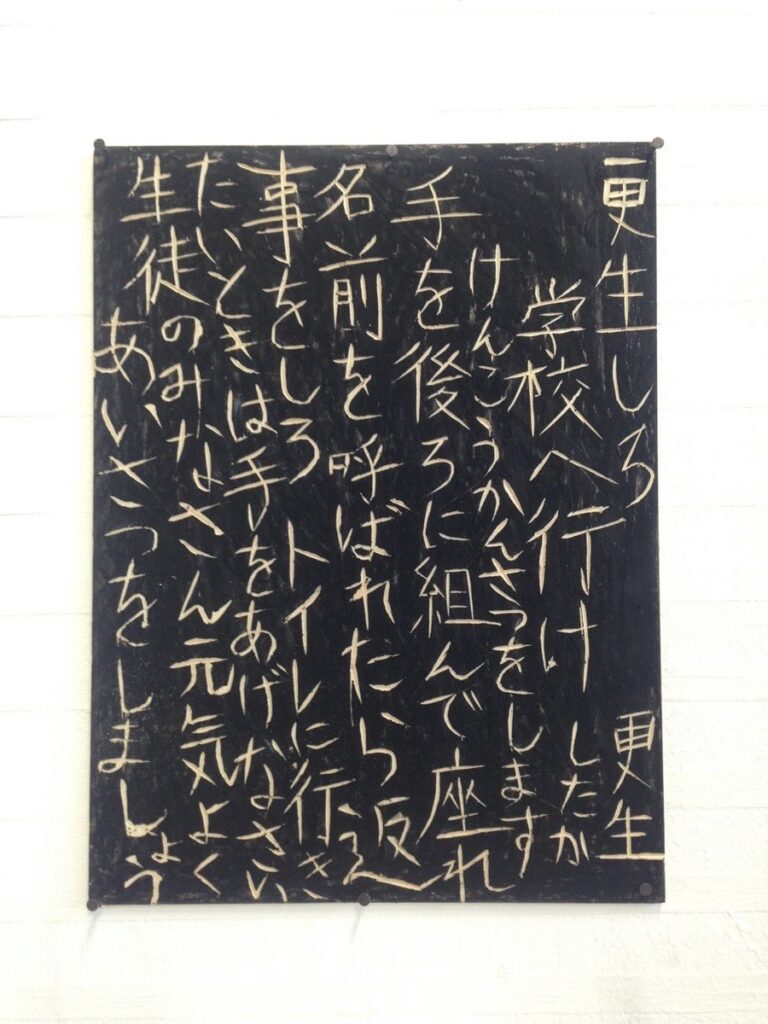 更生しろ 更生
学校へ行け したか
けんこうかんさつをします
手を後ろに組んで座れ
名前を呼ばれたら返
事をしろ トイレに行き
たいときは手をあげなさい
生徒のみなさん元気よく
あいさつをしましょう